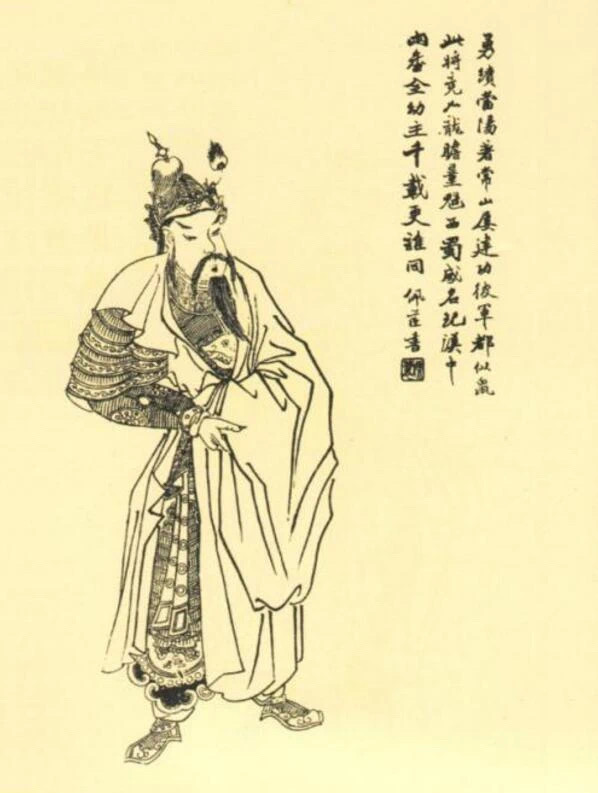 勇績當陽著常山屢建功彼軍都似鼠
此將竟如龍膽量魁西蜀威名紀漢中
兩番全幼主千載更誰同 佩芷書